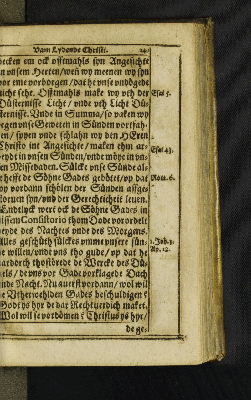 Vam Lydende Christi. 24
decken em ock offtmahls syn Angesichte
in vnsem Herten/ wen wy meenen wy syn
vor eme vorborgen/ dat he vnse vndögede
nicht sehe. Offtmahls make wy vth der
Düsternisse Licht/ vnde vth Licht Dü-
sternisse. Vnde in Summa/ so vaken wy
tegen vnse Geweten in Sünden vortfah-
ren/ spyen vnde schlahn wy den HEren
Christo int Angesichte/ maken ehm ar-
beyde in vnsen Sünden/ vnde möye in vn-
sen Missedaden. Sülcke vnse Sünde al-
hefft de Söhne Gades gebötet/ vp dat
wy vordann schölen der Sünden affge-
storuen syn/ vnd der Gerechticheit leuen.
Endtlyck wert ock de Söhne Gades in
Consistorio thom Dode vorordelt
beyde des Nachtes vnde des Morgens.
Alles geschüth sülckes vmme vnsere sün-
de willen/ vnde vns tho gude/ vp dat he
dardorch thostörede de Wercke des Dü-
uels/ de vns vor Gade vorklagede Dach
vnde Nacht. Nu auerst vordann/ wol wil
de Vtherwehlden Gades beschuldigen?
Godt ys hye de dar Rechtuerdich maket.
Wol wil se vordömen? Christus ys hye/
de ge-
Esa. 5.
Esa. 43.
Rom. 6.
1. Joh. 3.
Ap. 12.